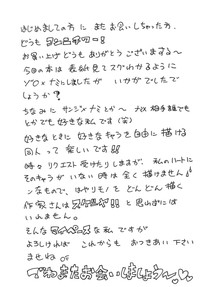 はじめましての方に またお会いしちゃった方、
どうも
お買い上げどうもありがとうございます～
今回の本は 表紙見てスグわかるように
ゾロ×ナミにしましたが いかがでしたで
しょうか？
ちなみに サンジ×ナミとか～ ナミ相手誰でも
とかでも 好きな私です(笑)
好きなときに 好きなキャラを自由に描ける
同人って 楽しいです！！
時々リクエスト受けたりしますが、私のハートに
そのキャラが いない時は全く描けません！
ンなもので、はやりモノを どんどん描く
作家さんは スゴイぜ!! と思わずには
いれません。
そんな マイペースな 私ですが
よろしければ これからも おつきあい下さい
ませね
でわまたお会いしましょう～♡